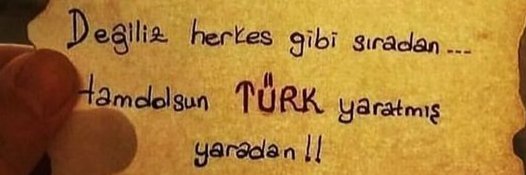 Değiliz herkes gibi sıradan...
Hamdolsun TÜRK yaratmış
yaradan!!